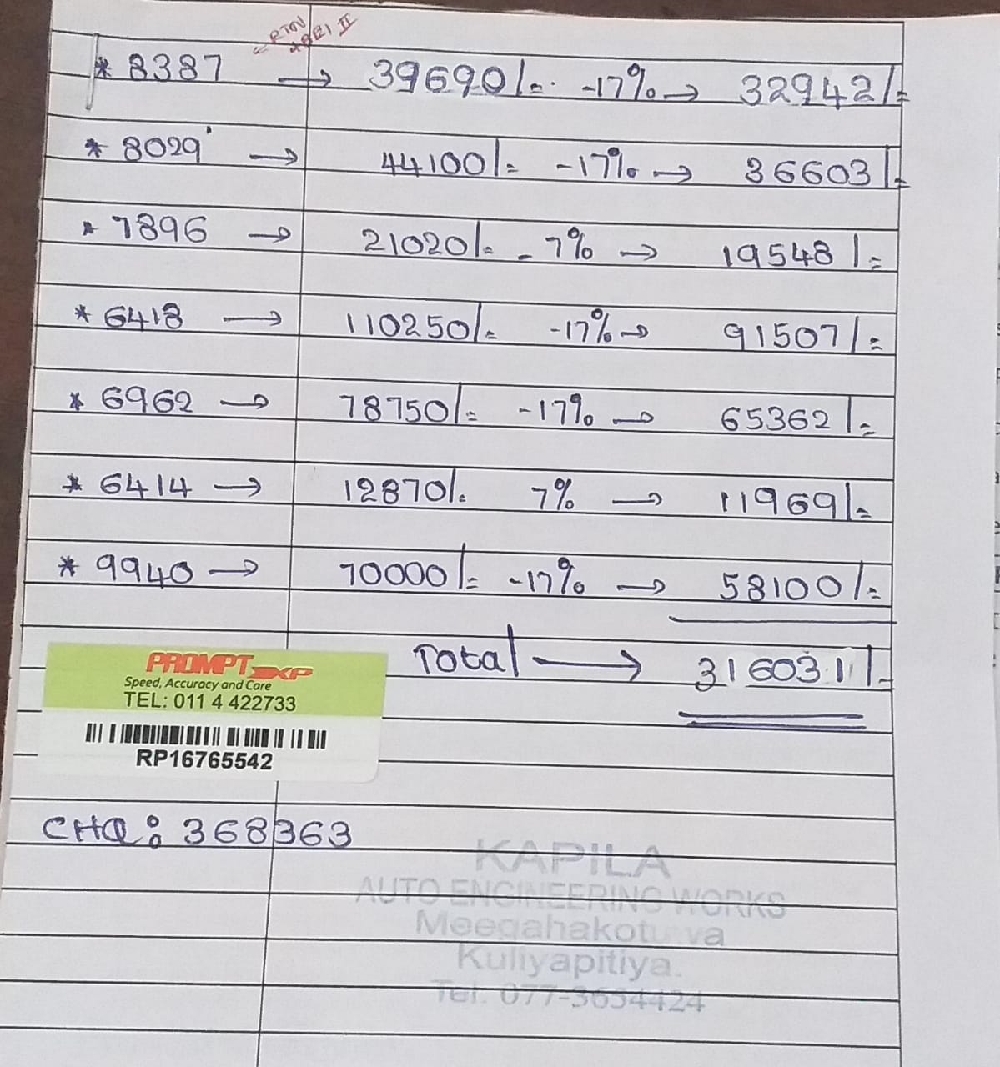 * 8387 → 39690/= -17% → 32942/=
* 8029 → 44100/= -17% → 36603/=
* 7896 → 21020/= - 7% → 19548/=
* 6418 → 110250/= -17% → 91507/=
* 6962 → 78750/= -17% → 65362/=
* 6414 → 12870/= 7% → 11969/=
* 9940 → 70000/= -17% → 58100/=
Total → 316031/=
PROMPT EXP
Speed, Accuracy and Care
TEL: 011 4 422733
RP16765542
CHQ: 368363
KAPILA
AUTO ENGINEERING WORKS
Kuliyapitiya.
Tel: 077-3654424